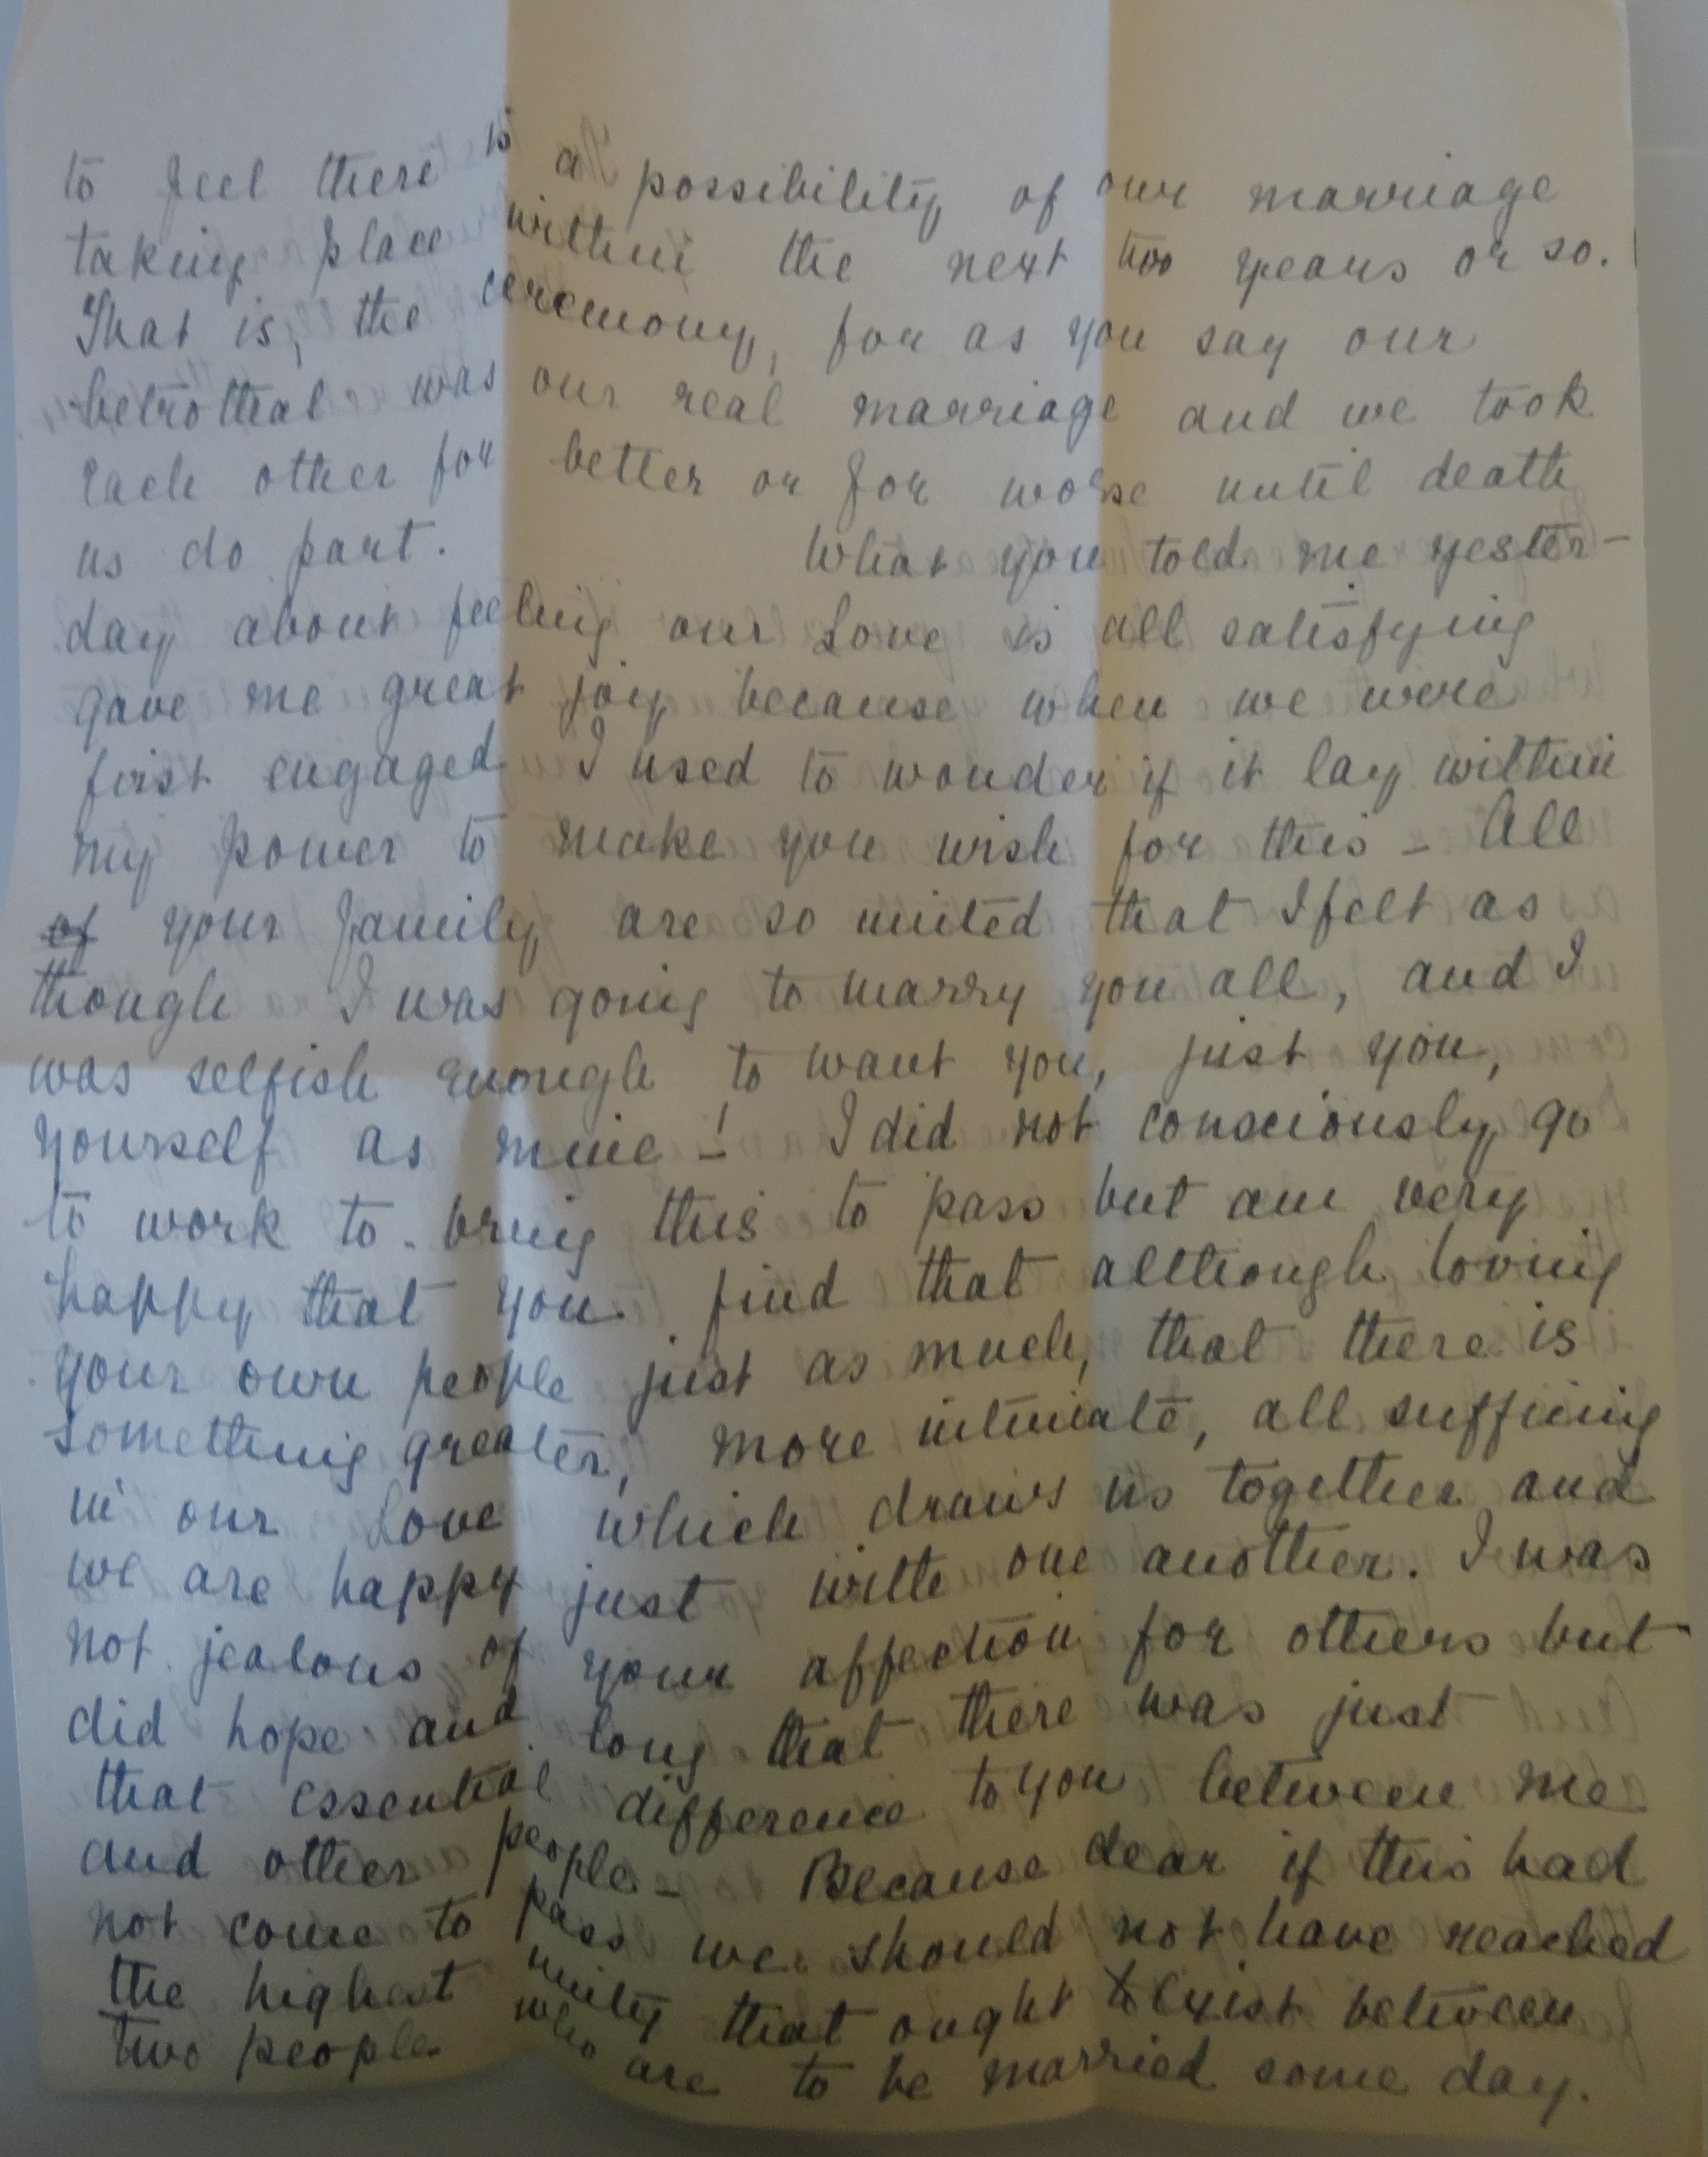 to feel there is a possibility of our marriage
taking place within the next two years or so.
That is, the ceremony, for as you say our
betrothal was our real marriage and we took
each other for better or for worse until death
us do part. What you told me yester-
day about feeling our Love is all satisfying
gave me great joy because when we were
first engaged I used to wonder if it lay within
my power to make you wish for this - All
of your family are so united that I felt as
though I was going to marry you all, and I
was selfish enough to want you, just you,
yourself as mine -! I did not consciously go
to work to bring this to pass but am very
happy that you find that although loving
your own people just as much, that there is
something greater, more intimate, all suffising
in our Love which draws us together and
we are happy just with one another. I was
not jealous of your affection for others but
did hope and long that there was just
that essential difference to you between me
and other people - Because dear if this had
not come to pass we should not have reached
the highest unity that ought to exist between
two people who are to be married some day.